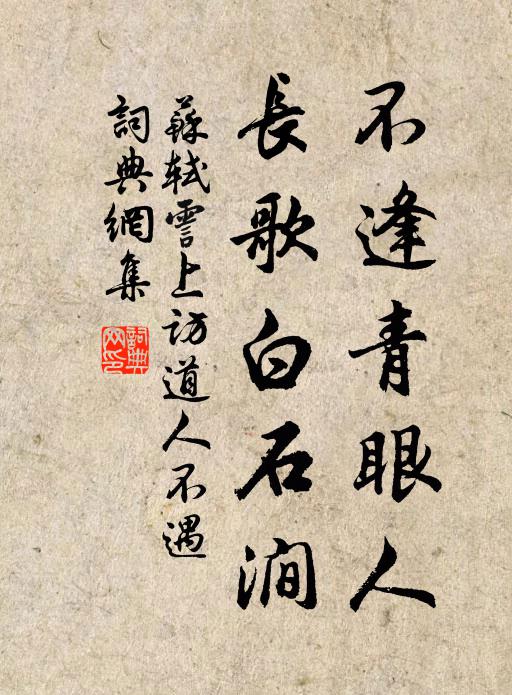 不逢青眼人
長歌白石澗
蘇軾雲上訪道人不遇
詞典網集
詞典网印